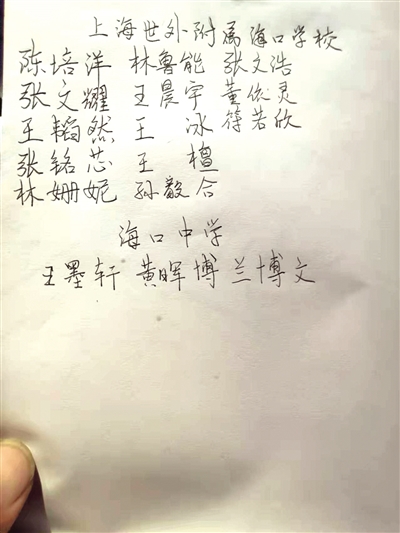 上海世外附属海口学校
陈培洋 林鲁能 张文浩
张文耀 王晨宇 董依灵
王韬然 王冰 符若欣
张铭芯 王檀
林姗妮 孙毅合
海口中学
王墨轩 黄晖博 兰博文